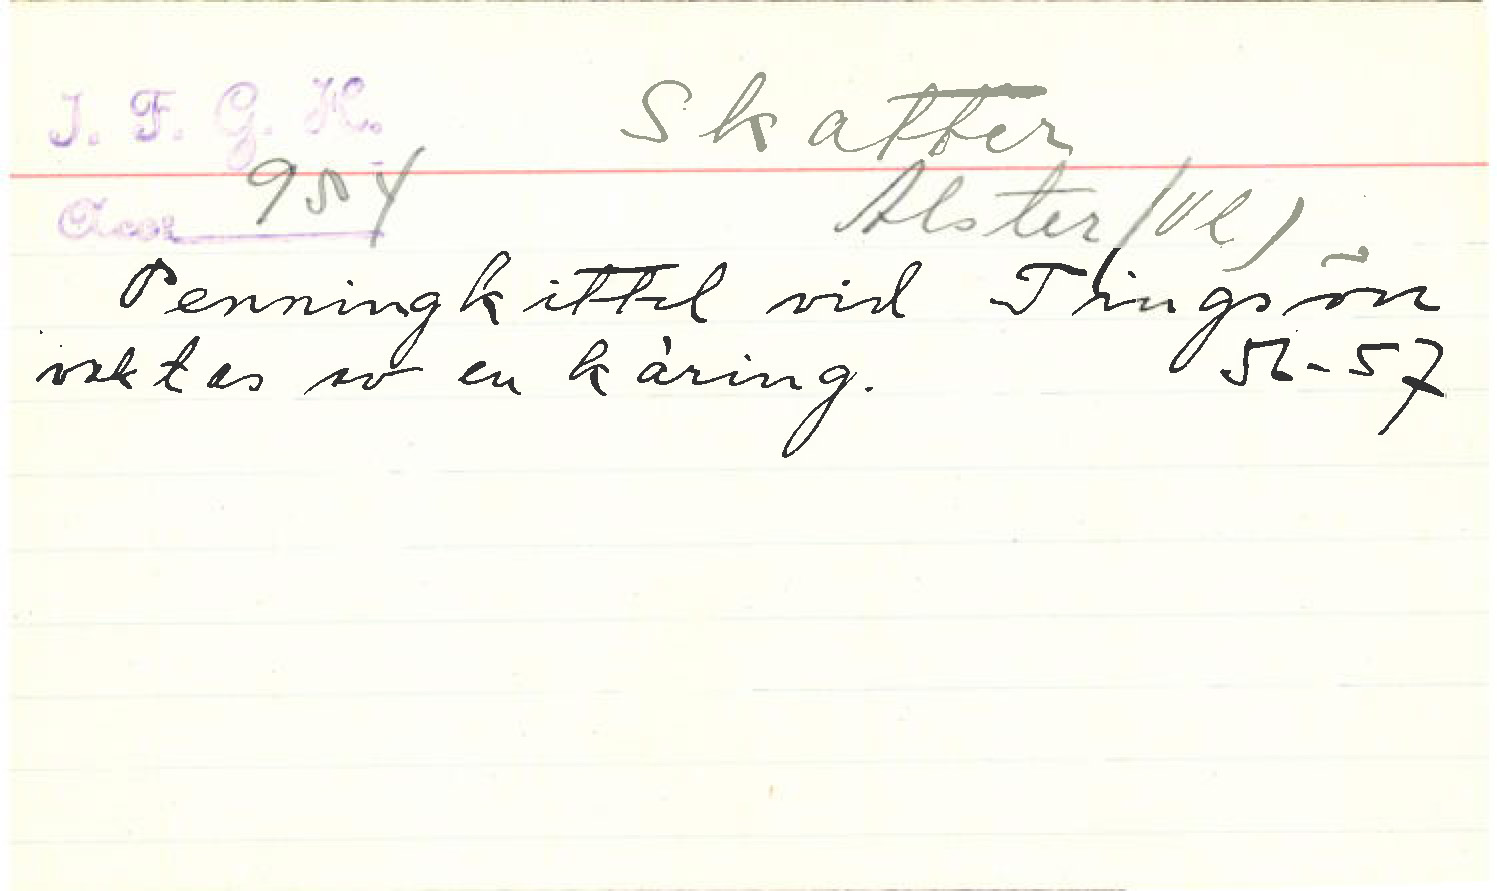 I. F. G. H.
Skatter
Acc. 954
Alster (Vl.)
Penningkittel vid Tingsön
vaktas av en käring. 56-57